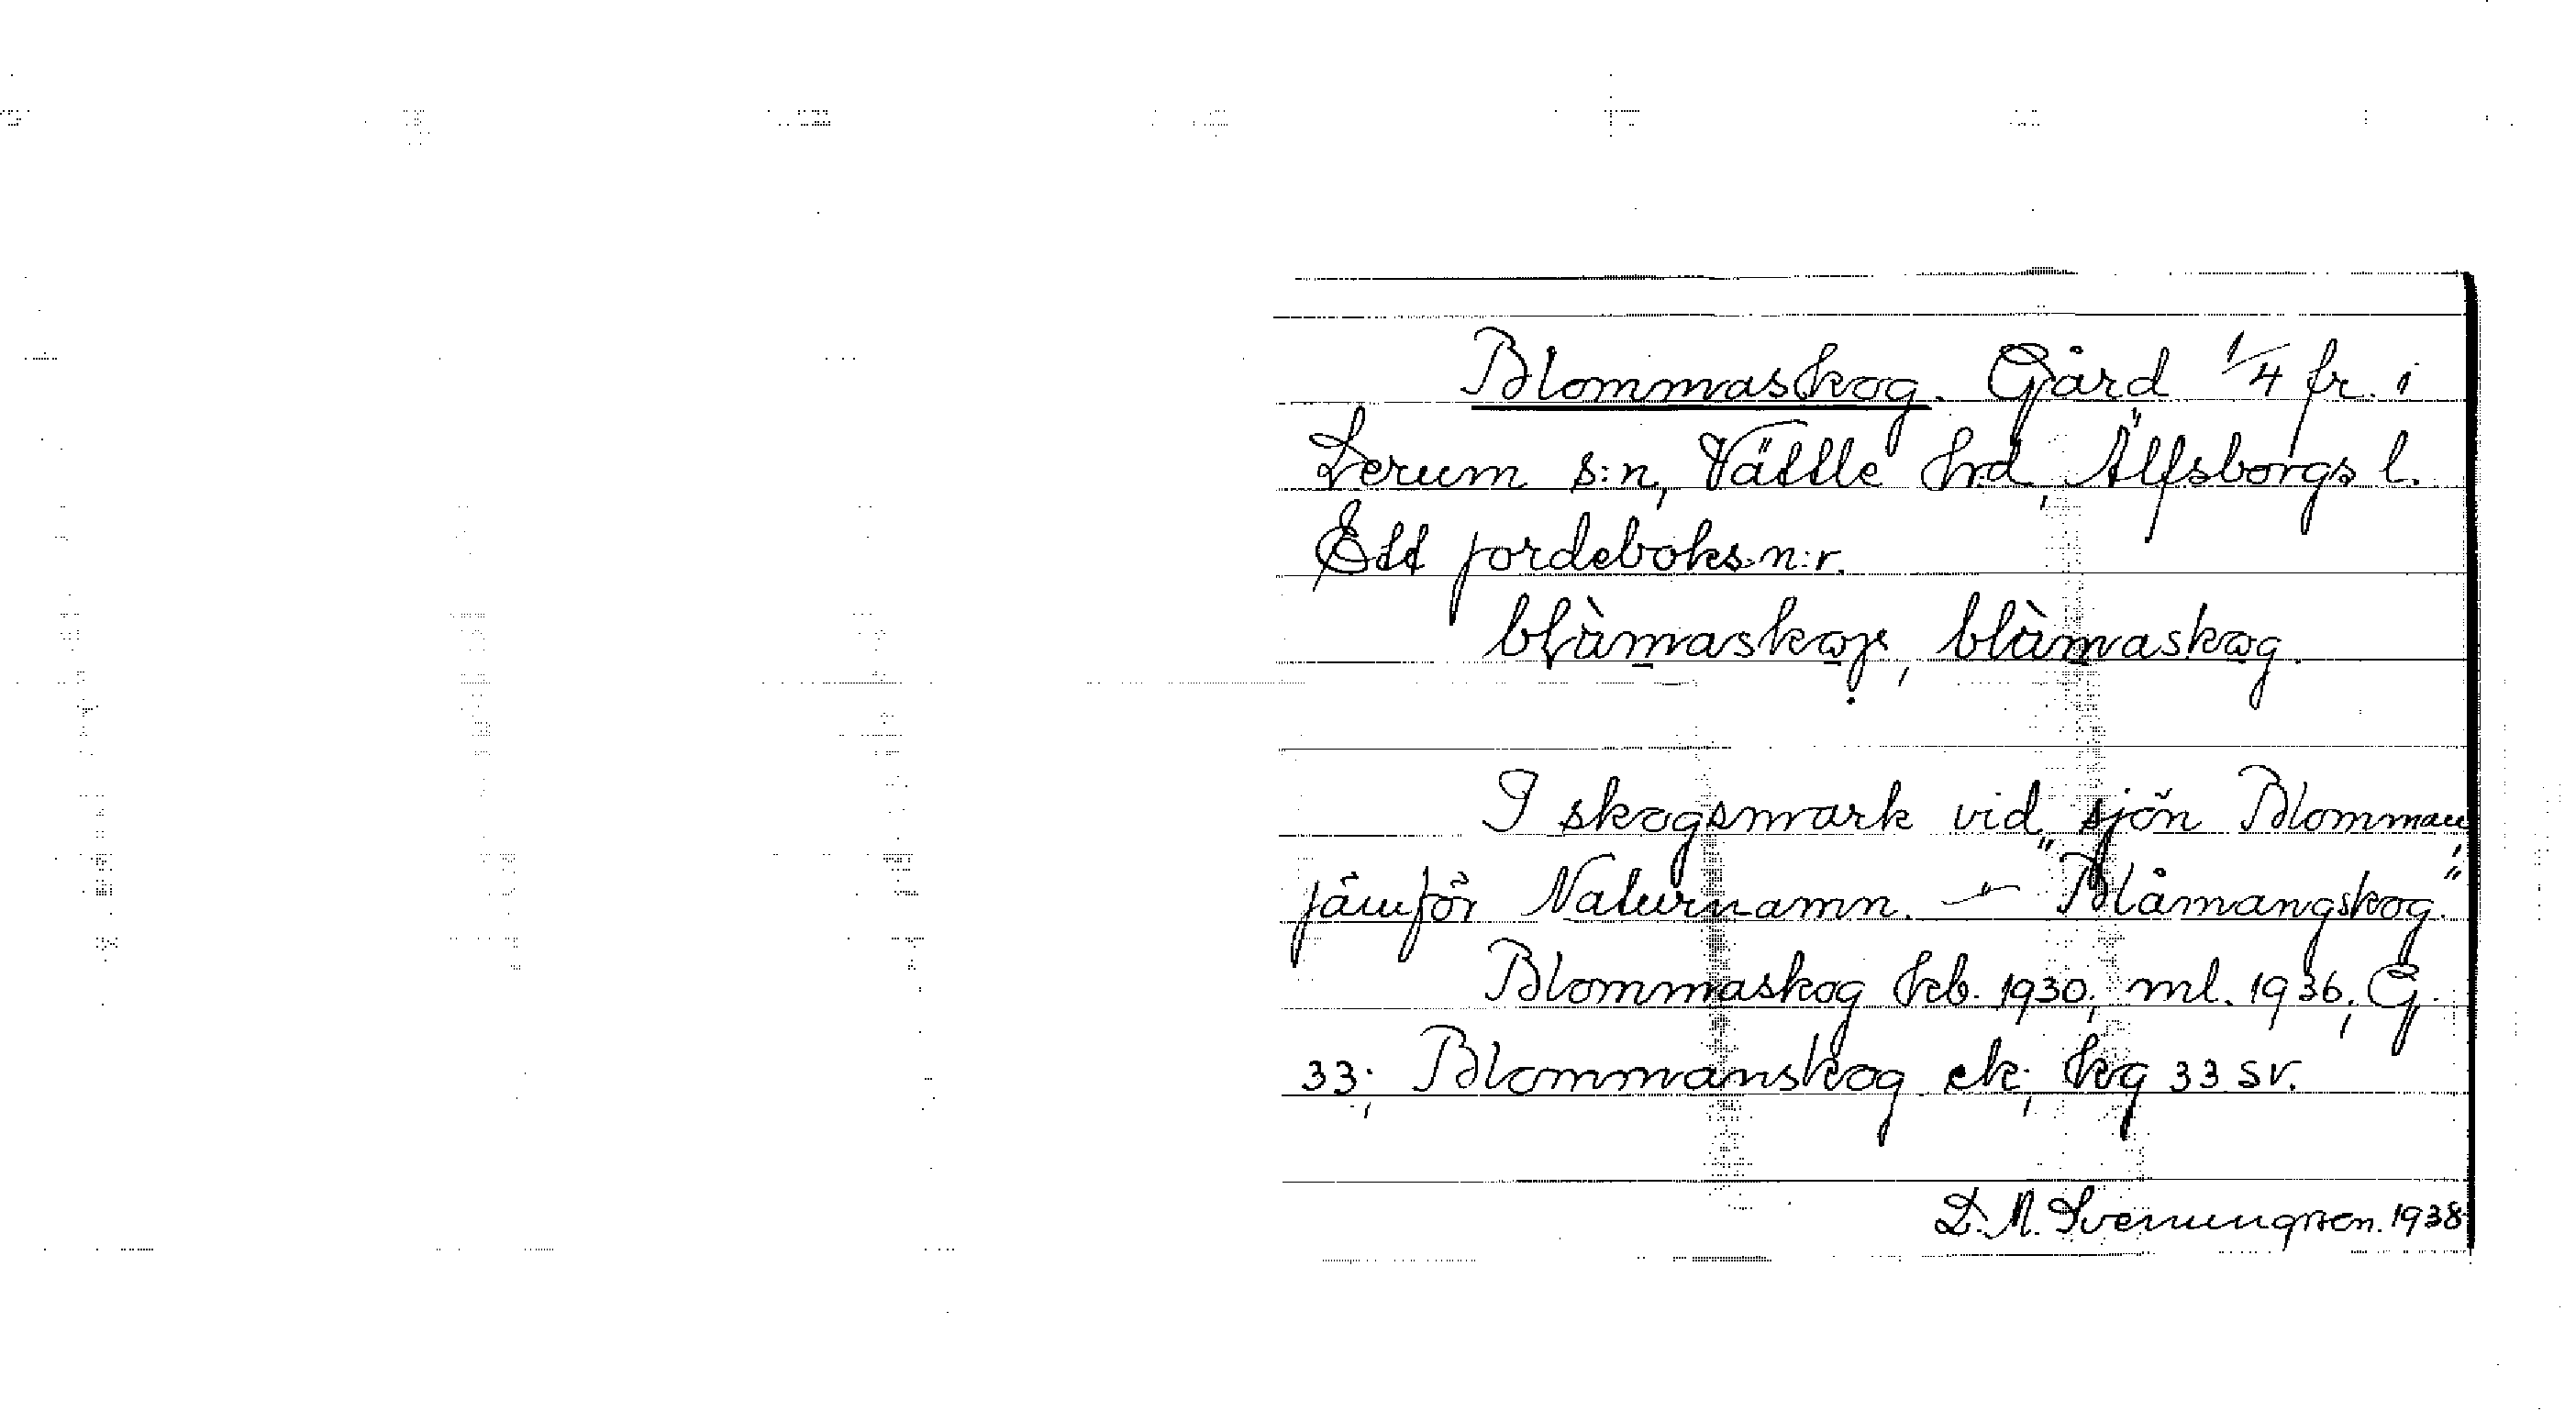 Blommaskog. Gård 1/4 fr. i
Lerum s:n, Vättle hrd, Älfsborgs l.
Ett jordeboks-n:r.
I skogsmark vid sjön Blomman,
jämför Naturnamn. - "Blåmangskog."
Blommaskog hkb. 1930, ml. 1936, G.
33; Blommanskog ek; kg 33 sv.
D. A. Svenungsson. 1938